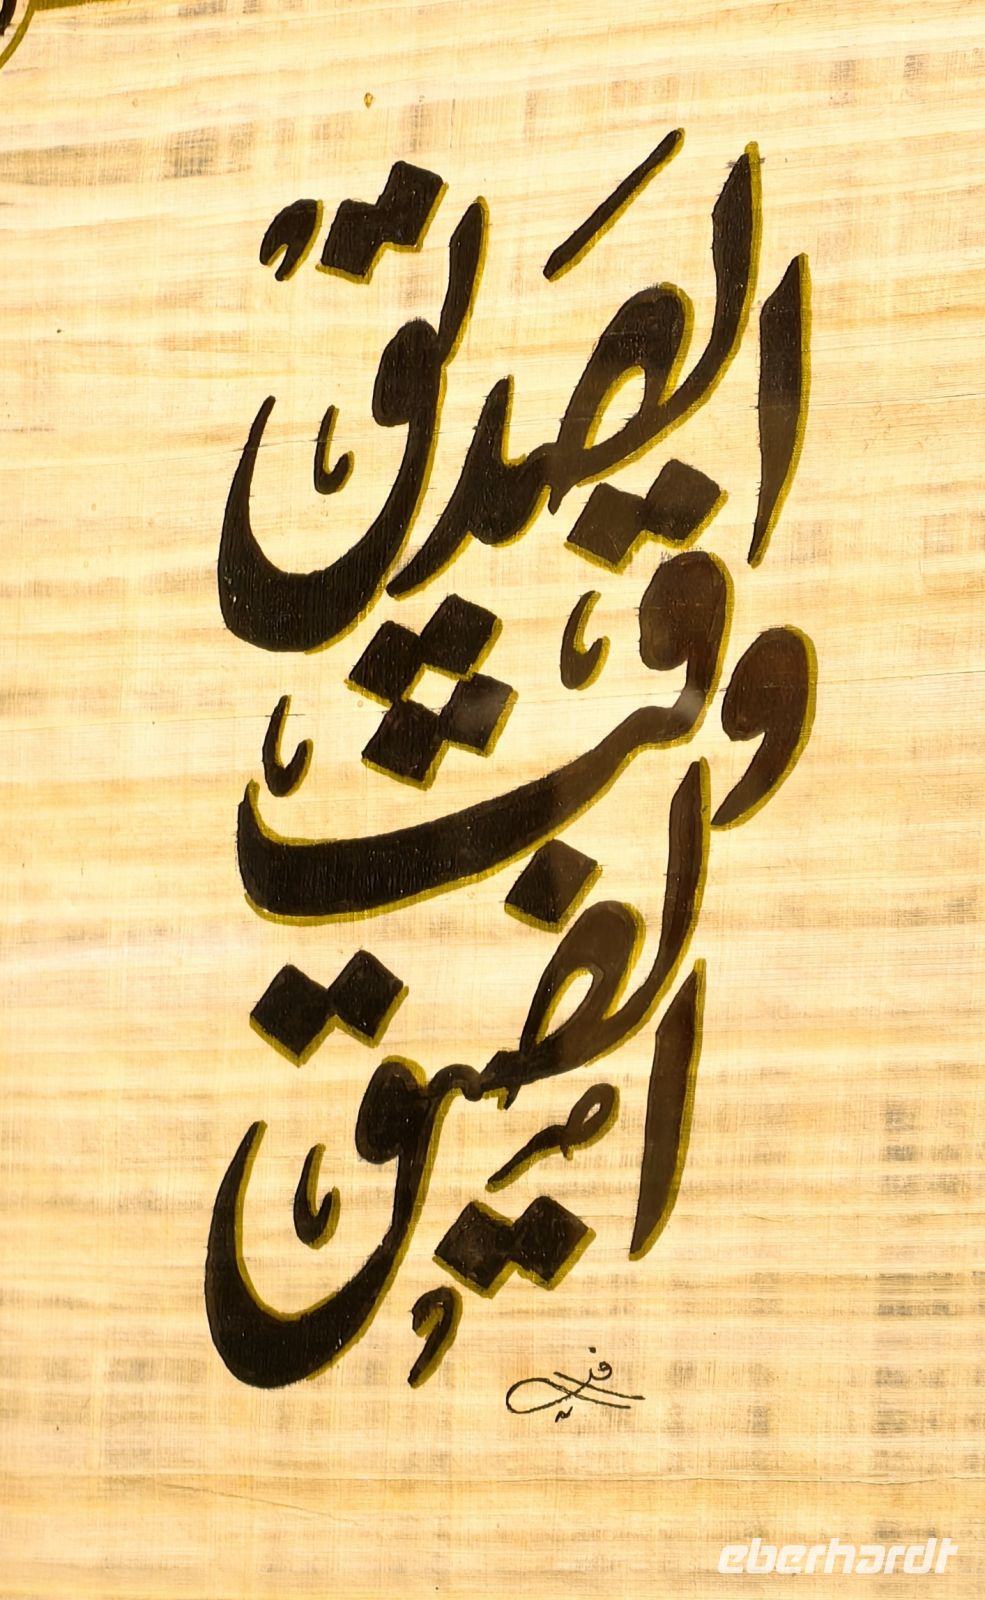 الصديق
وقت
الضيق
eberhardt